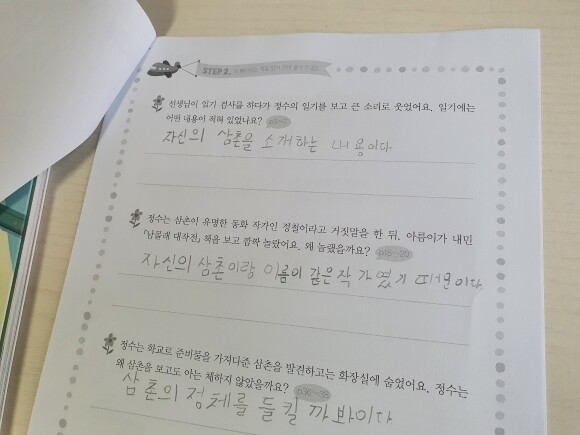 STEP 2.
선생님이 일기 검사를 하다가 정수의 일기를 보고 큰 소리로 웃었어요. 일기에는
어떤 내용이 적혀 있었나요?
자신의 삼촌을 소개하는 내용이다
정수는 삼촌이 유명한 동화 작가인 정철이라고 거짓말을 한 뒤, 아름이가 내민
『남몰래 대작전』 책을 보고 깜짝 놀랐어요. 왜 놀랐을까요? p18~20
자신의 삼촌이랑 이름이 같은 작가였기 때문이다
정수는 학교로 준비물을 가져다준 삼촌을 발견하고는 화장실에 숨었어요. 정수는
왜 삼촌을 보고도 아는 체하지 않았을까요?
삼촌의 정체를 들킬까봐이다